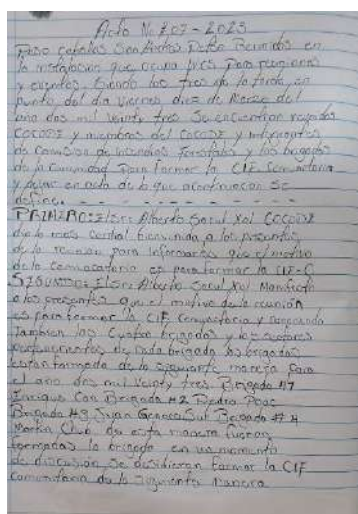 Acta No 207-2023
Paso cabellos San Andres Peten Reunidos en
la instalacion que ocupa para reuniones
y eventos, siendo las tres de la tarde en
punto del dia viernes diez de Marzo del
año dos mil veinty tres Se encuentran reunidos
COCODE y miembros del COCODE y integrantes
de comision de incendios forestales y las brigadas
de la comunidad para formar la CIF Comunitaria
y dejar en acta de lo que acontinuacion se
define. - - - - - - - - - -
PRIMERO: Alberto Sacul Xol COCODE
dio la mas cordial bienvenida a los presentes
de la reunion para informarles que el motivo
de la convocatoria es para formar la CIF-C
SEGUNDO: Alberto Sacul Xol Manifesto
a los presentes que el motivo de la reunión
es para formar la CIF Comunitaria y
tambien las Cuatro brigadas y los
de cada brigada las brigadas
estan formada de la siguiente manera para
el año dos mil veinty tres. Brigada #1
Enrique Caal Brigada #2 Pedro Pooc
Brigada #3 Juan Brigada # 4
Martin Chub de esta manera fueron
formadas la brigada en un momento
de discusión se desidieron formar la CIF
Comunitaria de la siguiente manera